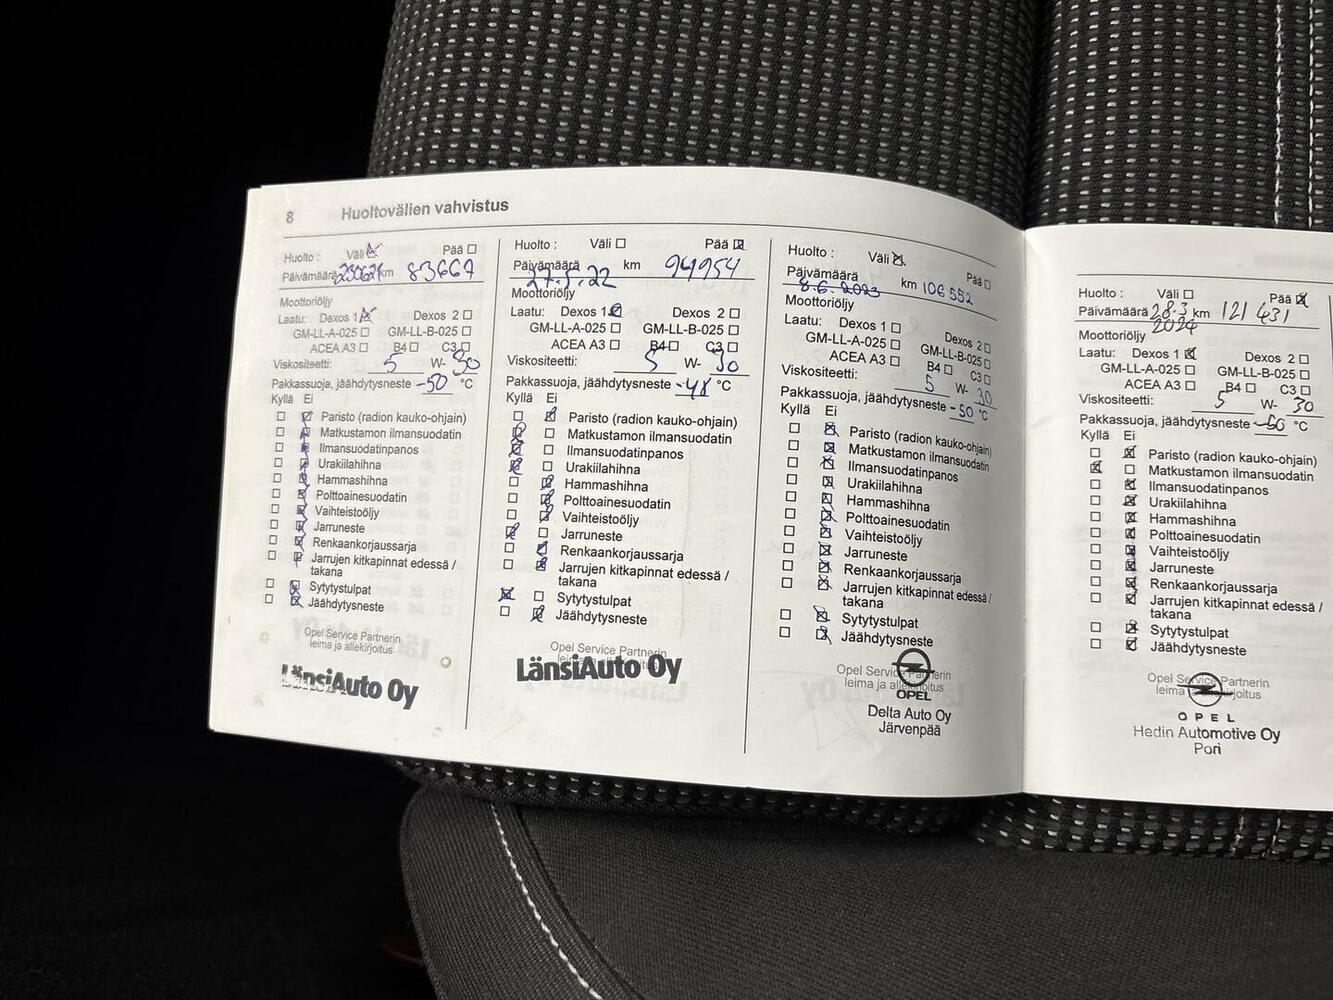 8 Huoltovälien vahvistus
Huolto : Väli Pää
Päivämäärä 230621 km 83667
Moottoriöljy
Laatu: Dexos 1 Dexos 2
GM-LL-A-025 GM-LL-B-025
ACEA A3 B4 C3
Viskositeetti: 5 W- 30
Pakkassuoja, jäähdytysneste -50 °C
Kyllä Ei
Paristo (radion kauko-ohjain)
Matkustamon ilmansuodatin
Ilmansuodatinpanos
Urakiilahihna
Hammashihna
Polttoainesuodatin
Vaihteistoöljy
Jarruneste
Renkaankorjaussarja
Jarrujen kitkapinnat edessä /
takana
Sytytystulpat
Jäähdytysneste
Opel Service Partnerin
leima ja allekirjoitus
LänsiAuto Oy
Huolto : Väli Pää
Päivämäärä km 94954
27.5.22
Moottoriöljy
Laatu: Dexos 1 Dexos 2
GM-LL-A-025 GM-LL-B-025
ACEA A3 B4 C3
Viskositeetti: 5 W- 30
Pakkassuoja, jäähdytysneste -48 °C
Kyllä Ei
Paristo (radion kauko-ohjain)
Matkustamon ilmansuodatin
Ilmansuodatinpanos
Urakiilahihna
Hammashihna
Polttoainesuodatin
Vaihteistoöljy
Jarruneste
Renkaankorjaussarja
Jarrujen kitkapinnat edessä /
takana
Sytytystulpat
Jäähdytysneste
Opel Service Partnerin
LänsiAuto Oy
Huolto : Väli Pää
Päivämäärä km 106 552
8.6.2023
Moottoriöljy
Laatu: Dexos 1 Dexos 2
GM-LL-A-025 GM-LL-B-025
ACEA A3 B4 C3
Viskositeetti: 5 W- 30
Pakkassuoja, jäähdytysneste -50 °C
Kyllä Ei
Paristo (radion kauko-ohjain)
Matkustamon ilmansuodatin
Ilmansuodatinpanos
Urakiilahihna
Hammashihna
Polttoainesuodatin
Vaihteistoöljy
Jarruneste
Renkaankorjaussarja
Jarrujen kitkapinnat edessä /
takana
Sytytystulpat
Jäähdytysneste
Opel Service Partnerin
leima ja allekirjoitus
OPEL
Delta Auto Oy
Järvenpää
Huolto : Väli Pää
Päivämäärä 28.3 km 121 431
2024
Moottoriöljy
Laatu: Dexos 1 Dexos 2
GM-LL-A-025 GM-LL-B-025
ACEA A3 B4 C3
Viskositeetti: 5 W- 30
Pakkassuoja, jäähdytysneste °C
Kyllä Ei
Paristo (radion kauko-ohjain)
Matkustamon ilmansuodatin
Ilmansuodatinpanos
Urakiilahihna
Hammashihna
Polttoainesuodatin
Vaihteistoöljy
Jarruneste
Renkaankorjaussarja
Jarrujen kitkapinnat edessä /
takana
Sytytystulpat
Jäähdytysneste
Opel Service Partnerin
leima ja allekirjoitus
OPEL
Hedin Automotive Oy
Pori